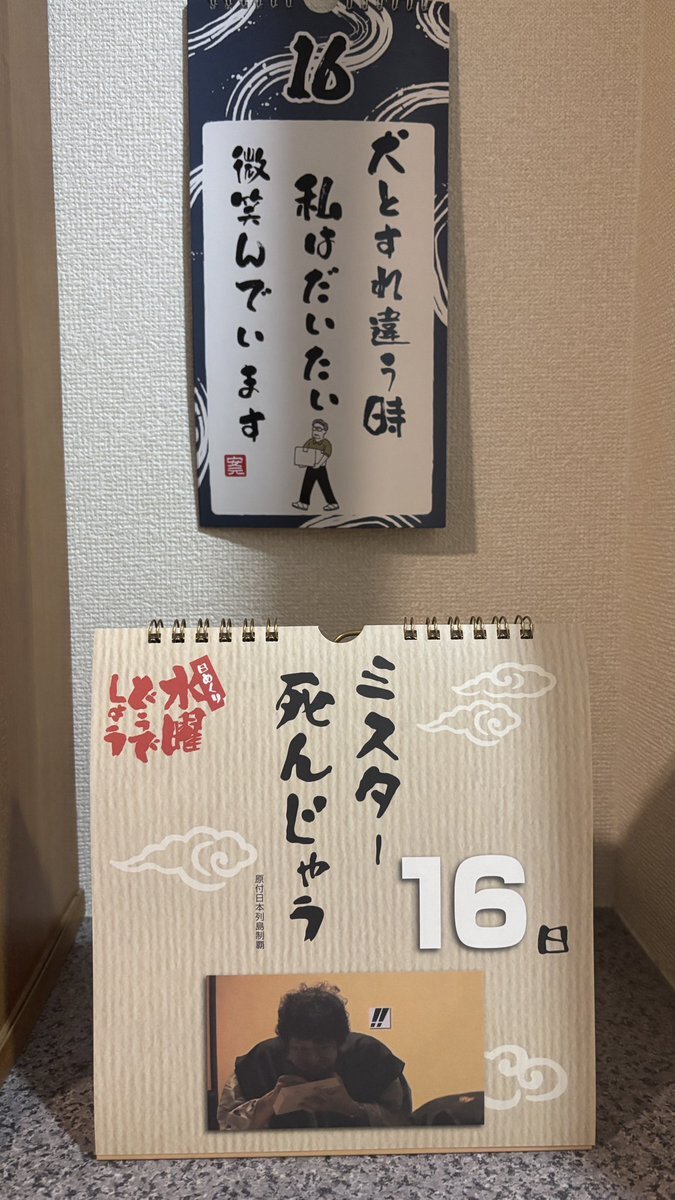 16
犬とすれ違う時
私はだいたい
微笑んでいます
日めくり
水曜
どうで
しょう
ミスター
死んじゃう
原付日本列島制覇
16日
!!